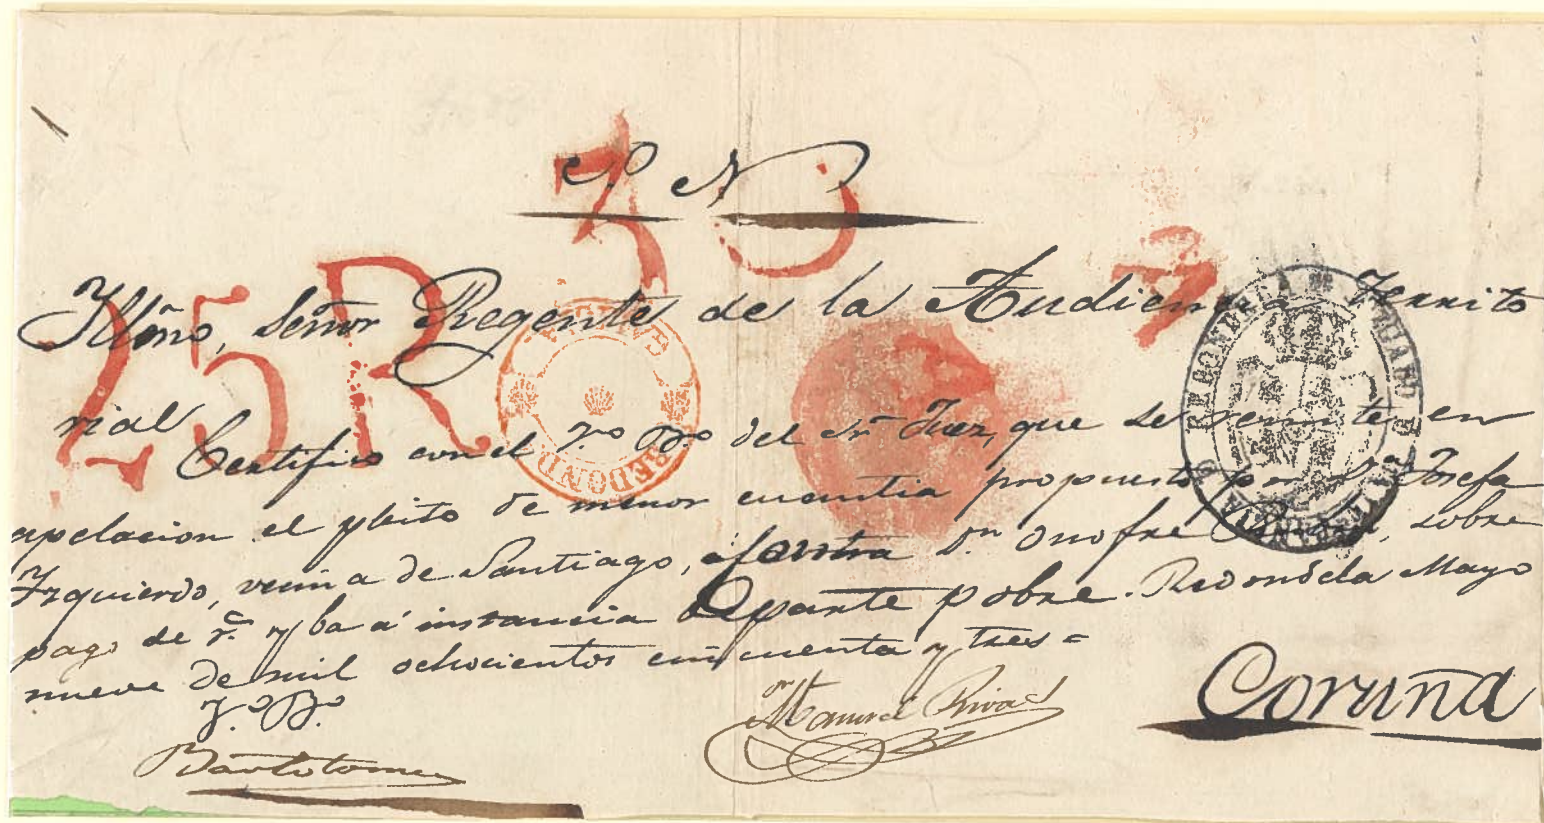 S. N
Yllmo, Señor Regente de la Audiencia Territo
rial
Certifico con el Vº Bº del Sr Juez, que se remite en
apelacion el pleito de menor cuantia propuesto por Dª Josefa
Yzquierdo, vecina de Santiago, contra Dn Onofre sobre
pago de rs y ba á instancia de parte pobre. Redondela Mayo
nueve de mil ochocientos cincuenta y tres =
Vº Bº
Bartolome
Manuel Rivas
Coruña
25R
3
REDOND